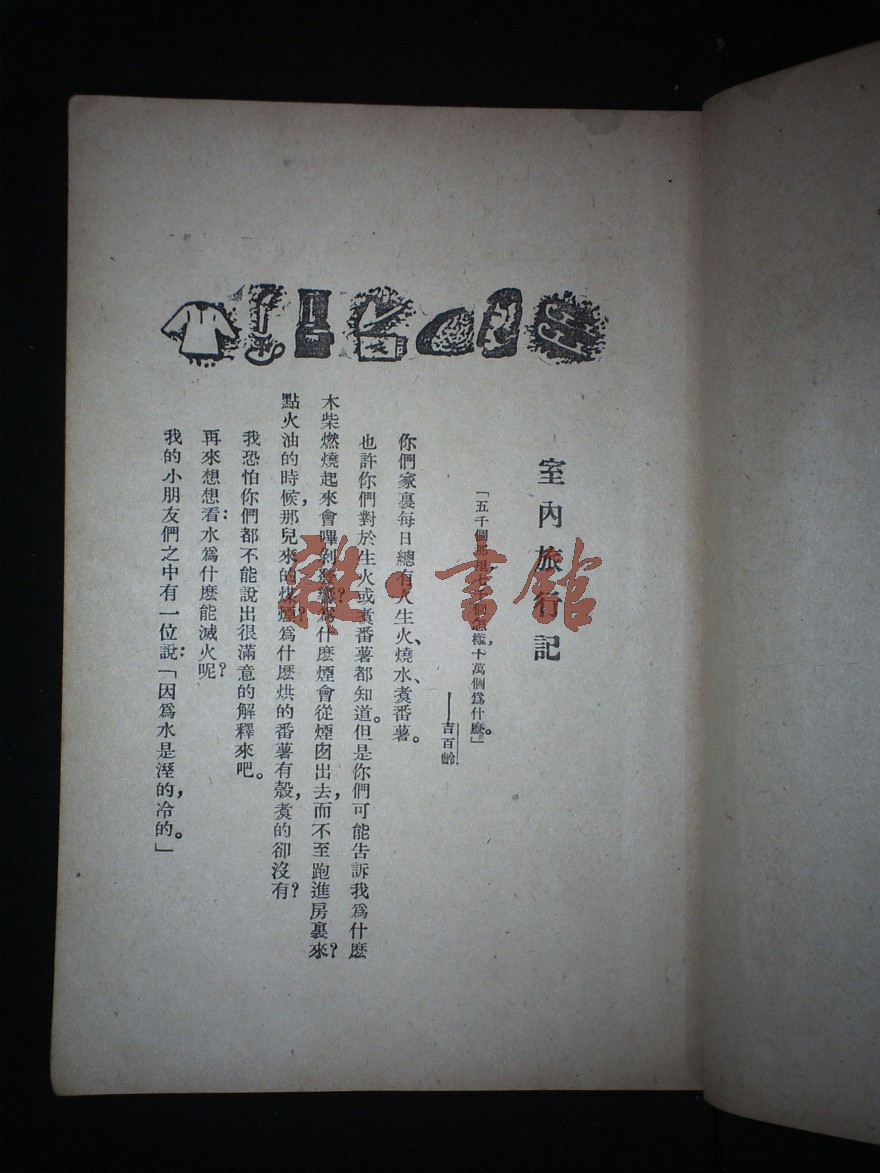 室內旅行記
「五千個那里，七千個怎樣，十萬個爲什麽。」
——吉百齡
你們家裏每日總有人生火、燒水、煑番薯。
也許你們對於生火或煑番薯都知道。但是你們可能告訴我爲什麽
木柴燃燒起來會嗶剝發響？爲什麽煙會從煙囱出去，而不至跑進房裏來？
點火油的時候，那兒來的煤煙？爲什麽烘的番薯有殼，煑的卻沒有？
我恐怕你們都不能說出很滿意的解釋來吧。
再來想想看：水爲什麽能滅火呢？
我的小朋友們之中有一位說：「因爲水是溼的，冷的。」
雜·書館